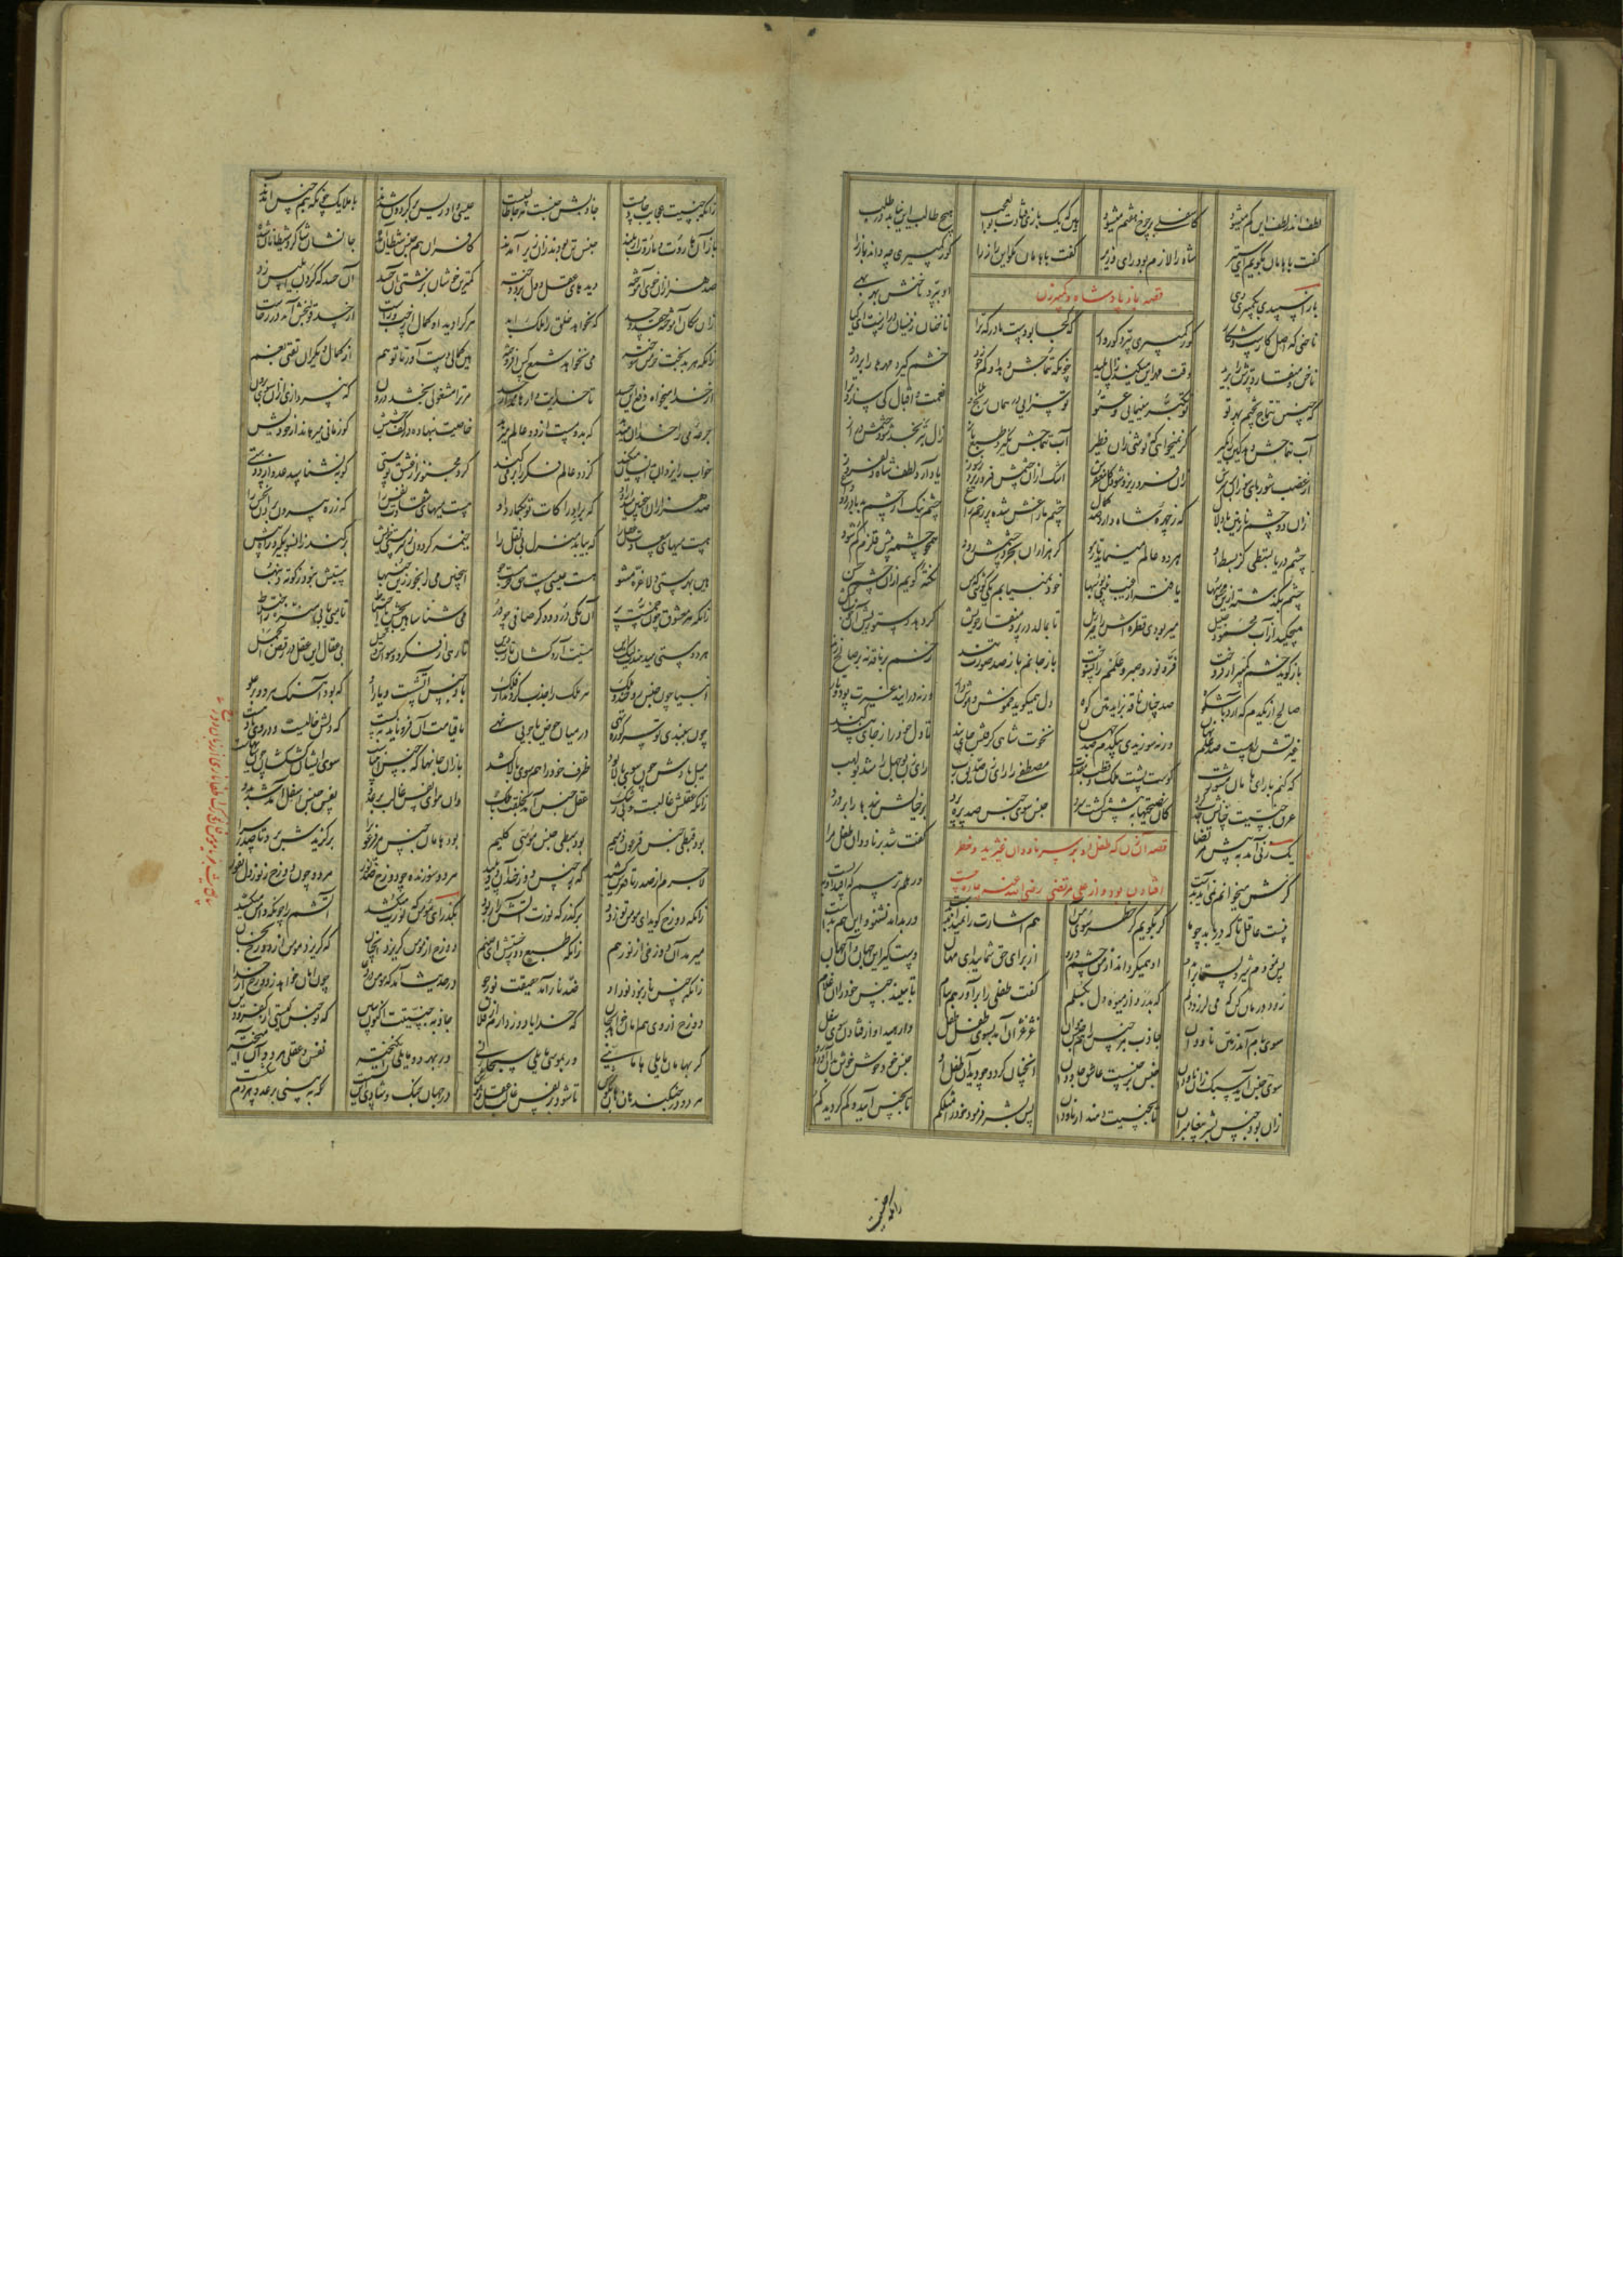 لطف اندر لطف این گم میشود کاسفلی بر چرخ هفتم میشود هین که یک بازی فتادت بوالعجب هیچ طالب این نیابد در طلب
گفت با هامان بگویم ای ستیر شاه را لازم بود رای وزیر گفت با هامان مگو این راز را کور کمپیری چه داند باز را
قصه باز پادشاه و کمپیرزن
باز اسپیدی بکمپیری دهی او ببرد ناخنش بهر بهی
ناخنی که اصل کارست و شکار کور کمپیری ببرد کوروار که کجا بودست مادر که ترا ناخنان زینسان درازست ای کیا
ناخن و منقار و پرش را برید وقت مهر این میکند زال پلید چونکه تتماجش دهد او کم خورد خشم گیرد مهرها را بر درد
که چنین تتماج پختم بهر تو تو تکبر مینمایی و عتو تو سزایی در همان رنج و نعمت و اقبال کی سازد ترا
آب تتماجش دهد کین را بگیر گر نمیخواهی که نوشی زان فطیر آب تتماجش نگیرد طبع باز زال بترنجد شود خشمش دراز
از غضب شوربای سوزان بر سرش زن فرو ریزد شود کل مغفرش اشک از آن چشمش فرو ریزد ز سوز یاد آرد لطف شاه دلفروز
زان دو چشم نازنین با دلال که ز چهره شاه دارد صد کمال چشم مازاغش شده پر زخم زاغ چشم نیک از چشم بد با درد و داغ
چشم دریا بسطتی کز بسط او هر دو عالم مینماید تار مو گر هزاران چرخ در چشمش رود همچو چشمه پیش قلزم گم شود
چشم بگذشته ازین محسوسها یافته از غیب بینی بوسها خود نمی یابم یکی گوشی که من نکته گویم از آن چشم حسن
میچکید آن آب محمود جلیل میربودی قطره اش را جبرئیل تا بمالد در پر و منقار خویش گر دهد دستوریش آن خوب کیش
باز گوید خشم کمپیر ار فروخت فر و نور و صبر و علمم را نسوخت باز جانم باز صد صورت تند زخم بر ناقه نه بر صالح زند
صالح از یکدم که آرد با شکوه صد چنان ناقه بزاید متن کوه دل همیگوید خموش و هوش دار ورنه درانید غیرت پود و تار
غیرتش را هست صد حلم نهان ورنه سوزیدی بیکدم صد جهان نخوت شاهی گرفتش جای پند تا دل خود را ز جای پند کند
که کنم با رای هامان مشورت کوست پشت ملک و قطب مقدرت مصطفی را رای زن صدیق رب رای زن بوجهل را شد بولهب
عرق جنسیت چنانش جذب کرد کان نصیحتها به پیشش گشت سرد جنس سوی جنس صد پره پرد بر خیالش بندها را بر درد
قصه آن زن که طفل او بر سر ناودان غیژید و خطر
افتادن بود و از علی مرتضی رضی الله عنه چاره جست
یک زنی آمد به پیش مرتضی گفت شد بر ناودان طفلی مرا
گرش میخوانم نمی آید بدست ور هلم ترسم که افتد او به پست
نیست عاقل تا که دریابد چو ما گر بگویم کز خطر سوی من آ هم اشارت را نمیداند بدست ور بداند نشنود این هم بدست
پس نمودم شیر و پستانرا بدو او همیگرداند از من چشم و رو از برای حق شمایید ای مهان دستگیر این جهان و آن جهان
زود درمان کن که می لرزد دلم که بدرد از میوه دل بگسلم گفت طفلی را بر آور هم ببام تا ببیند جنس خود را آن غلام
سوی بام آمد ز متن ناودان جاذب هر جنس را هم جنس دان غژغژان آمد بسوی طفل طفل وارهید او از فتادن سوی سفل
سوی جنس آید سبک زان ناودان جنس بر جنسست عاشق جاودان آنچنان کرد و چو دید آن طفل او جنس خود خوش خوش بدان آورد رو
زان بود جنس بشر پیغامبران تا بجنسیت رهند از ناودان پس بشر فرمود خود را مثلکم تا بجنس آیید و کم گردید گم
زانکه جنسیت
زانکه جنسیت عجایب جاذبیست جاذبش جنسست هر جا طالبیست عیسی و ادریس بر گردون شدند با ملایک چونکه هم جنس آمدند
باز آن هاروت و ماروت از بلند جنس تن بودند زان زیر آمدند کافران هم جنس شیطان آمده جانشان شاگرد شیطانان شده
صد هزاران خوی بد آموخته دیده های عقل و دل بر دوخته کمترین خوشان بزشتی آن حسد آن حسد که گردن ابلیس زد
زان سگان آموخته حقد و حسد که نخواهد خلق را ملک ابد هر کرا دید او کمال از چپ و راست از حسد قولنجش آمد درد خاست
زانکه هر بدبخت خرمن سوخته می نخواهد شمع کس افروخته هین کمالی دست آور تا تو هم از کمال دیگران نفتی بغم
از خدا میخواه دفع این حسد تا خدایت وارهاند از جسد مر ترا مشغولیی بخشد درون که نپردازی ازان سوی برون
جرعه می را خدا آن میدهد که بدو مست از دو عالم میرهد خاصیت بنهاده در کف حشیش کو زمانی میرهاند از خودیش
خواب را یزدان بدانسان میکند کز دو عالم فکر را بر می کند کرد مجنون را ز عشق پوستی کو بنشناسد عدو از دوستی
صد هزاران این چنین می دارد او که بر ادراکات تو بگمارد او هست میهای شقاوت نفس را که ز ره بیرون برد آن نحس را
هست میهای سعادت عقل را که بیابد منزل بی نقل را خیمه گردون ز سرمستی خویش بر کند زان سو بگیرد راه پیش
هین بهر مستی دلا غره مشو هست عیسی مست حق خر مست جو این چنین می را بجو زین خنبها مستیش نبود ز کوته دنبها
زانکه هر معشوق چون خنبیست پر آن یکی درد و دگر صافی چو در می شناسا هین بچش با احتیاط تا میی یابی منزه ز اختلاط
هر دو مستی میدهندت لیک این مستیت آرد کشان تا رب دین تا رهی از فکر و وسواس و حیل بی عقال این عقل در رقص الجمل
انبیا چون جنس روحند و ملک مر ملک را جذب کردند از فلک باد جنس آتشست و یار او که بود آهنگ هر دو بر علو
چون ببندی تو سر کوزه تهی در میان حوض یا جویی نهی تا قیامت آن فرو ناید به پست که دلش خالیست و در وی باد هست
میل بادش چون سوی بالا بود ظرف خود را هم سوی بالا کشد باز آن جانها که جنس انبیاست سوی ایشان کش کشان چون سایهاست
زانکه عقلش غالبست و بی ز شک عقل جنس آمد بخلقت با ملک وان هوای نفس غالب بر عدو نفس جنس اسفل آمد شد بدو
بود قبطی جنس فرعون ذمیم بود سبطی جنس موسی کلیم بود هامان جنس مر فرعون را برگزیدش برد بر صدر سرا
لاجرم از صدر تا قعرش کشید که ز جنس دوزخند آن دو پلید هر دو سوزنده چو دوزخ ضد نور هر دو چون دوزخ ز نور دل نفور
زانکه دوزخ گوید ای مومن تو زود برگذر که نورت آتش را ربود بگذر ای مومن که نورت میکشد آتشم را چونکه دامن میکشد
میرمد آن دوزخی از نور هم زانکه طبع دوزخستش ای صنم دوزخ از مومن گریزد آنچنان که گریزد مومن از دوزخ بجان
زانکه جنس نار نبود نور او ضد نار آمد حقیقت نورجو در حدیث آمد که مومن در دعا چون امان خواهد ز دوزخ از خدا
دوزخ از وی هم امان خواهد بجان که خدایا دور دارم از فلان جاذبه جنسیتست اکنون ببین که تو جنس کیستی از کفر و دین
گر بهامان مایلی هامانیی ور بموسی مایلی سبحانیی ور بهر دو مایلی انگیخته نفس و عقلی هر دوان آمیخته
هر دو در جنگند هان و هان بکوش تا شود بر نفس غالب عقل و هوش در جهان جنگ شادی این بس است که ببینی بر عدو هر دم شکست